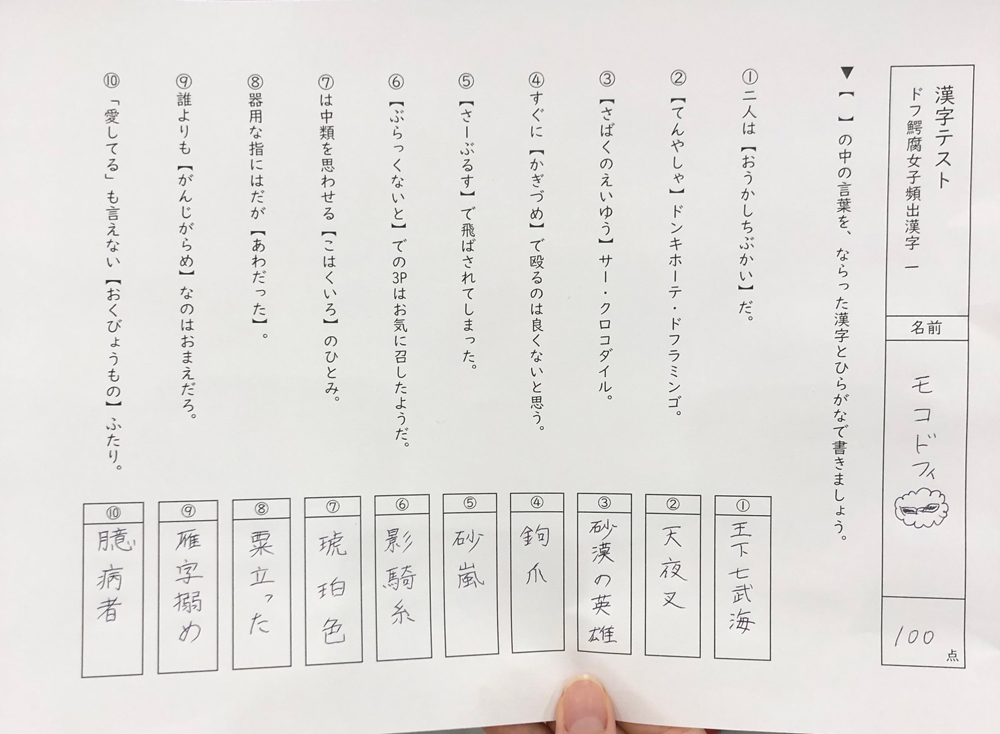 漢字テスト
ドフ鰐腐女子頻出漢字 一
名前
モコドフィ
100
点
▼【 】の中の言葉を、ならった漢字とひらがなで書きましょう。
①二人は【おうかしちぶかい】だ。
②【てんやしゃ】ドンキホーテ・ドフラミンゴ。
③【さばくのえいゆう】サー・クロコダイル。
④すぐに【かぎづめ】で殴るのは良くないと思う。
⑤【さーぶるす】で飛ばされてしまった。
⑥【ぶらっくないと】での3Pはお気に召したようだ。
⑦は中類を思わせる【こはくいろ】のひとみ。
⑧器用な指にはだが【あわだった】。
⑨誰よりも【がんじがらめ】なのはおまえだろ。
⑩「愛してる」も言えない【おくびょうもの】ふたり。
①
王下七武海
②
天夜叉
③
砂漠の英雄
④
鉤爪
⑤
砂嵐
⑥
影騎糸
⑦
琥珀色
⑧
粟立った
⑨
雁字搦め
⑩
臆病者